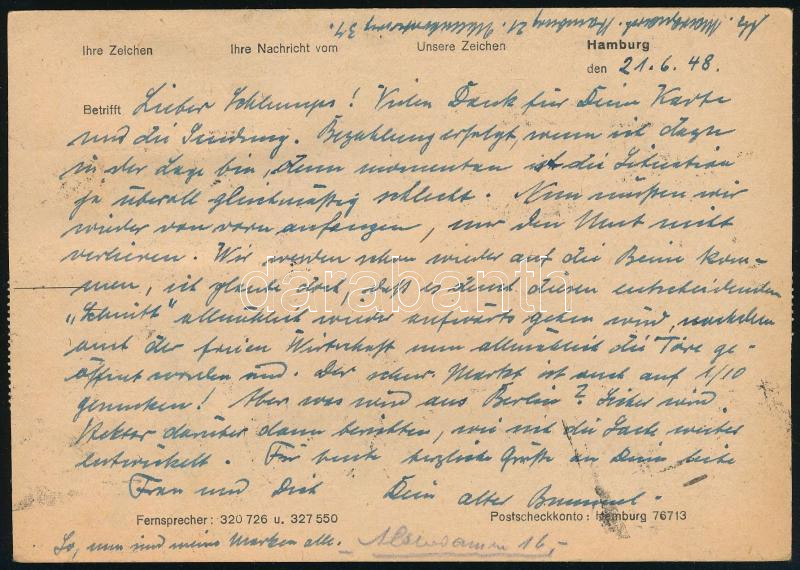 Hamburg 21.
Ihre Zeichen Ihre Nachricht vom Unsere Zeichen Hamburg
den 21.6.48.
Betrifft Lieber Schlumps! Vielen Dank für Deine Karte
und die Sendung. Bezahlung erfolgt, wenn ich dazu
in der Lage bin, denn momentan ist die Situation
ja überall gleichmäßig schlecht. Nun müssen wir
wieder von vorn anfangen, nur den Mut nicht
verlieren. Wir werden schon wieder auf die Beine kom-
men, ich glaube doch, daß es durch diesen entscheidenden
"Schnitt" allmählich wieder aufwärts gehen wird, nachdem
auch der freien Wirtschaft nun allmählich die Tore ge-
öffnet worden sind. Der schw. Markt ist auch auf 1/10
gesunken! Aber was wird aus Berlin? Sicher wird
Rektor darüber dann berichten, wie sich die Sache weiter
entwickelt. Für heute herzliche Grüße an Deine liebe
Frau und Dich Dein alter
Fernsprecher: 320 726 u. 327 550 Postscheckkonto: Hamburg 76713
So, nun sind meine Marken alle. 16,-
darabanth